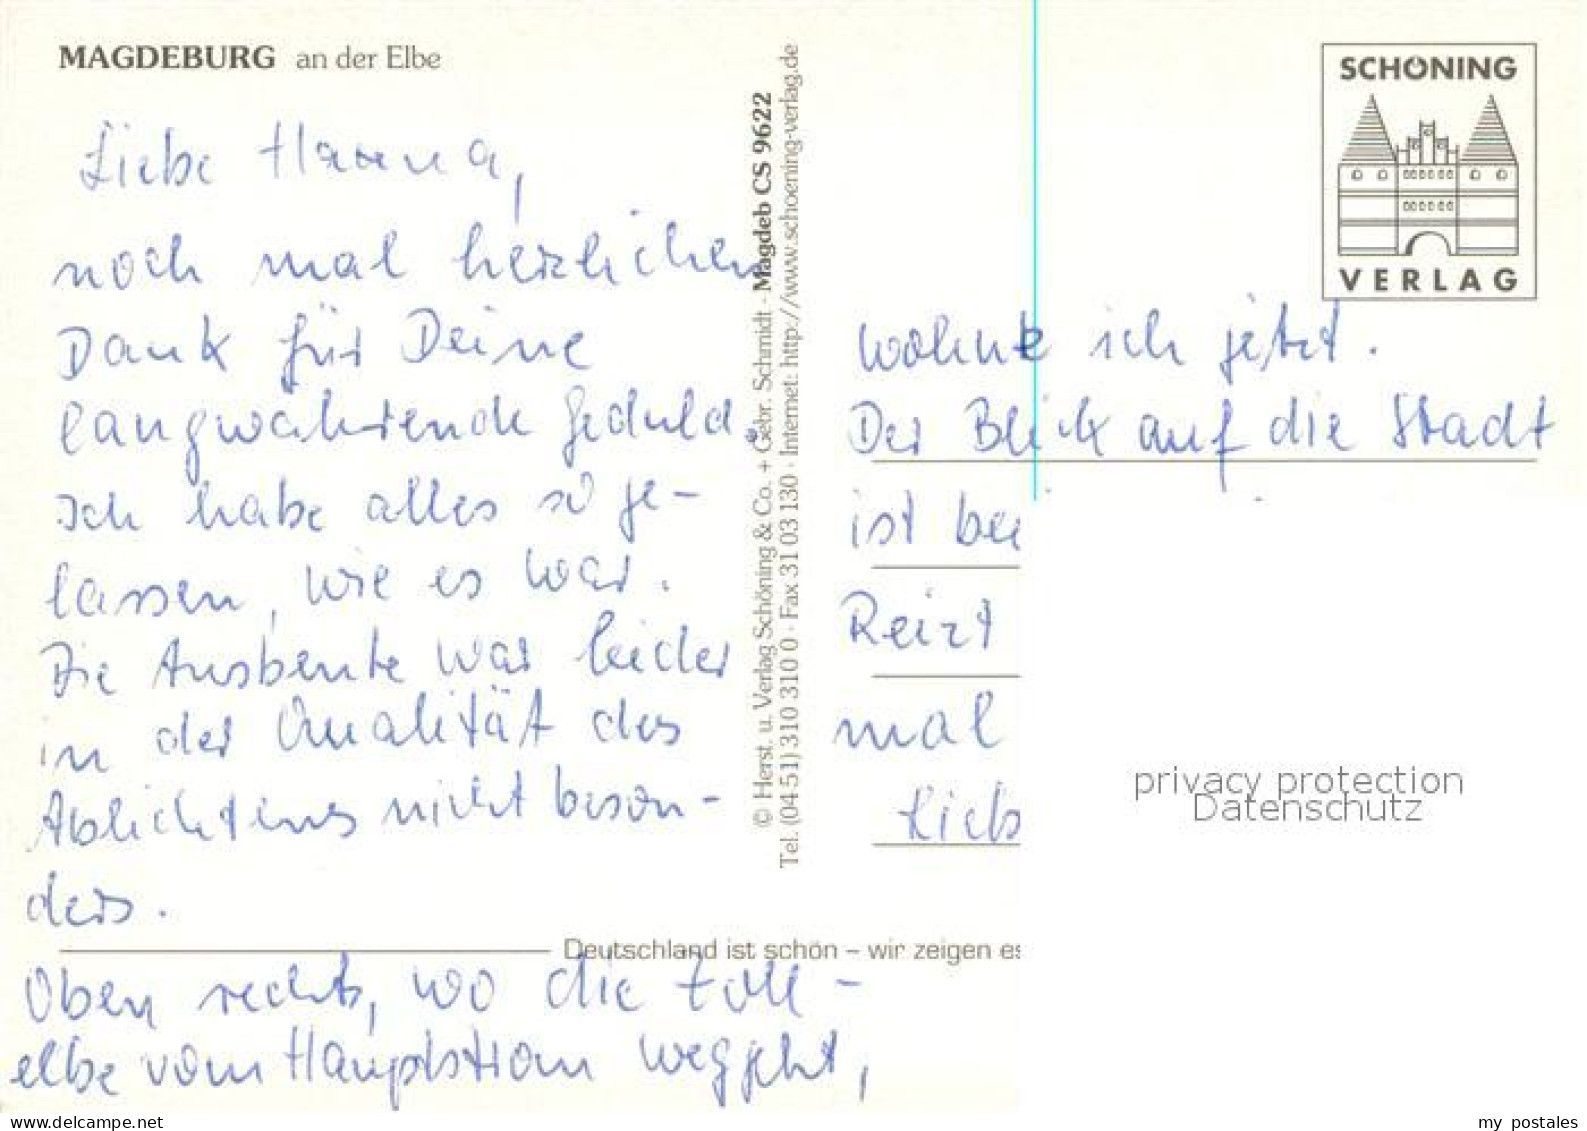 MAGDEBURG an der Elbe
Liebe Hanna,
noch mal herzlichen
Dank für Deine
langwährende Geduld.
Ich habe alles so ge-
lassen, wie es war.
Die Ausbeute war leider
in der Qualität des
Ablichtens nicht beson-
ders.
Deutschland ist schön – wir zeigen es
Oben rechts, wo die Zoll-
elbe vom Hauptstrom weggeht,
© Herst. u. Verlag Schöning & Co. + Gebr. Schmidt · Magdeb CS 9622
Tel. (04 51) 310 310 0 · Fax 31 03 130 · Internet: http://www.schoening-verlag.de
SCHÖNING
VERLAG
wohne ich jetzt.
Der Blick auf die Stadt
ist bei
Reizt
mal
Lieb
privacy protection
Datenschutz
www.delcampe.net
my_postales